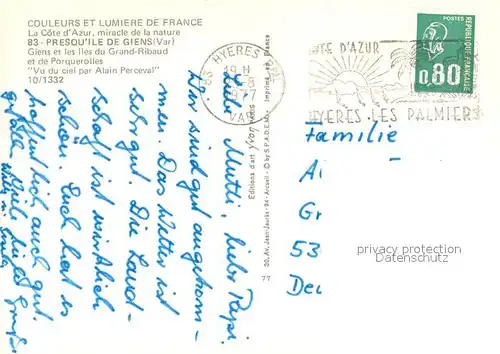 COULEURS ET LUMIERE DE FRANCE
La Côte d'Azur, miracle de la nature
83 - PRESQU'ILE DE GIENS (Var)
Giens et les Iles du Grand-Ribaud
et de Porquerolles
"Vu du ciel par Alain Perceval"
10/1332
83 HYERES
19 H
1977
VAR
COTE D'AZUR
HYERES LES PALMIERS
POSTES
REPUBLIQUE FRANÇAISE
0,80
Liebe Mutti, lieber Papi.
Wir sind gut angekom-
men. Das Wetter ist
sehr gut. Die Land-
schaft ist wirklich
schön. Euch hat es
hoffentlich auch gut
Editions d'art yvon
30, Av. Jean-Jaurès - 94 - Arcueil - © by S.P.A.D.E.M. - Imprimé en France
77
Familie
Al
Gr
53
Det
privacy protection
Datenschutz